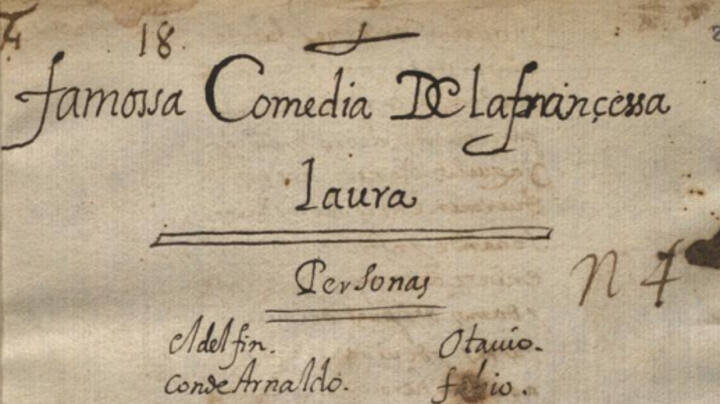 18.
famossa Comedia De la françessa
Laura
Personas
n 4
el delfin. Otauio.
Conde Arnaldo. fabio.